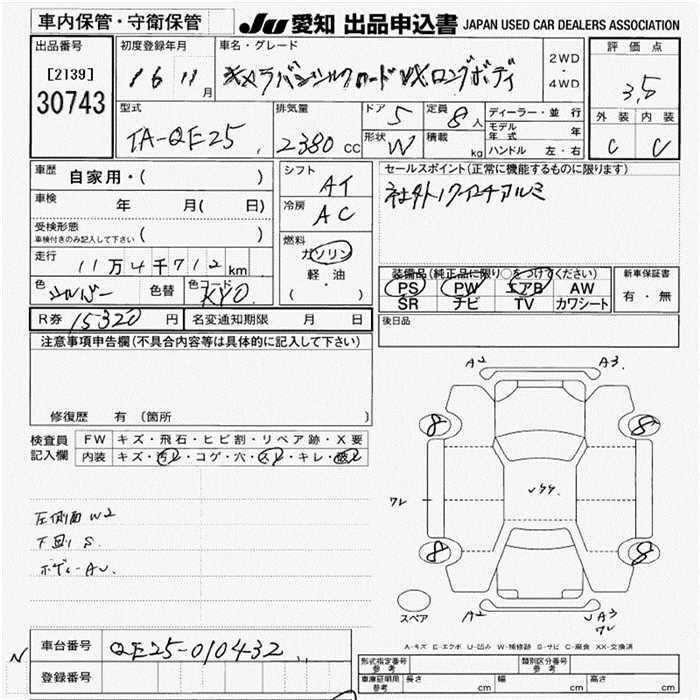 車内保管・守衛保管
JU 愛知 出品申込書 JAPAN USED CAR DEALERS ASSOCIATION
出品番号
[2139]
30743
初度登録年月
16 11月
車名・グレード
2WD
・
4WD
評価点
3,5
外装 内装
C C
型式
TA-QE25
排気量
2380 CC
ドア 5
形状 W
定員 8人
積載 kg
ディーラー・並行
モデル年式 年
ハンドル 左・右
車歴 自家用・( )
車検 年 月( 日)
受検形態
車検付きのみ記入して下さい ( )
走行
11万4千712km
色 シルバー 色替 色コード KY0
シフト AT
冷房 AC
燃料
ガソリン
軽・油
( ・ )
セールスポイント(正常に機能するものに限ります)
装備品(純正品に限り○をつけてください)
PS PW エアB AW
SR ナビ TV カワシート
新車保証書
有・無
後日品
R券 15320 円 名変通知期限 月 日
注意事項申告欄(不具合内容等は具体的に記入して下さい)
修復歴 有(箇所 )
検査員
記入欄
FW キズ・飛石・ヒビ割・リペア跡・X要
内装 キズ・汚レ・コゲ・穴・スレ・キレ・破レ
左側面 W2
下回り S.
ボデーAU.
A2 A3.
8 8
ワレ
8 8
スペア
A2 A3
ワレ
A-キズ E-エクボ U-凹み W-補修跡 S-サビ C-腐食 XX-交換済
N
車台番号 QE25-010432
登録番号
型式指定番号
参考
類別区分番号
参考
車庫証明用
参考
長さ cm 幅 cm 高さ cm